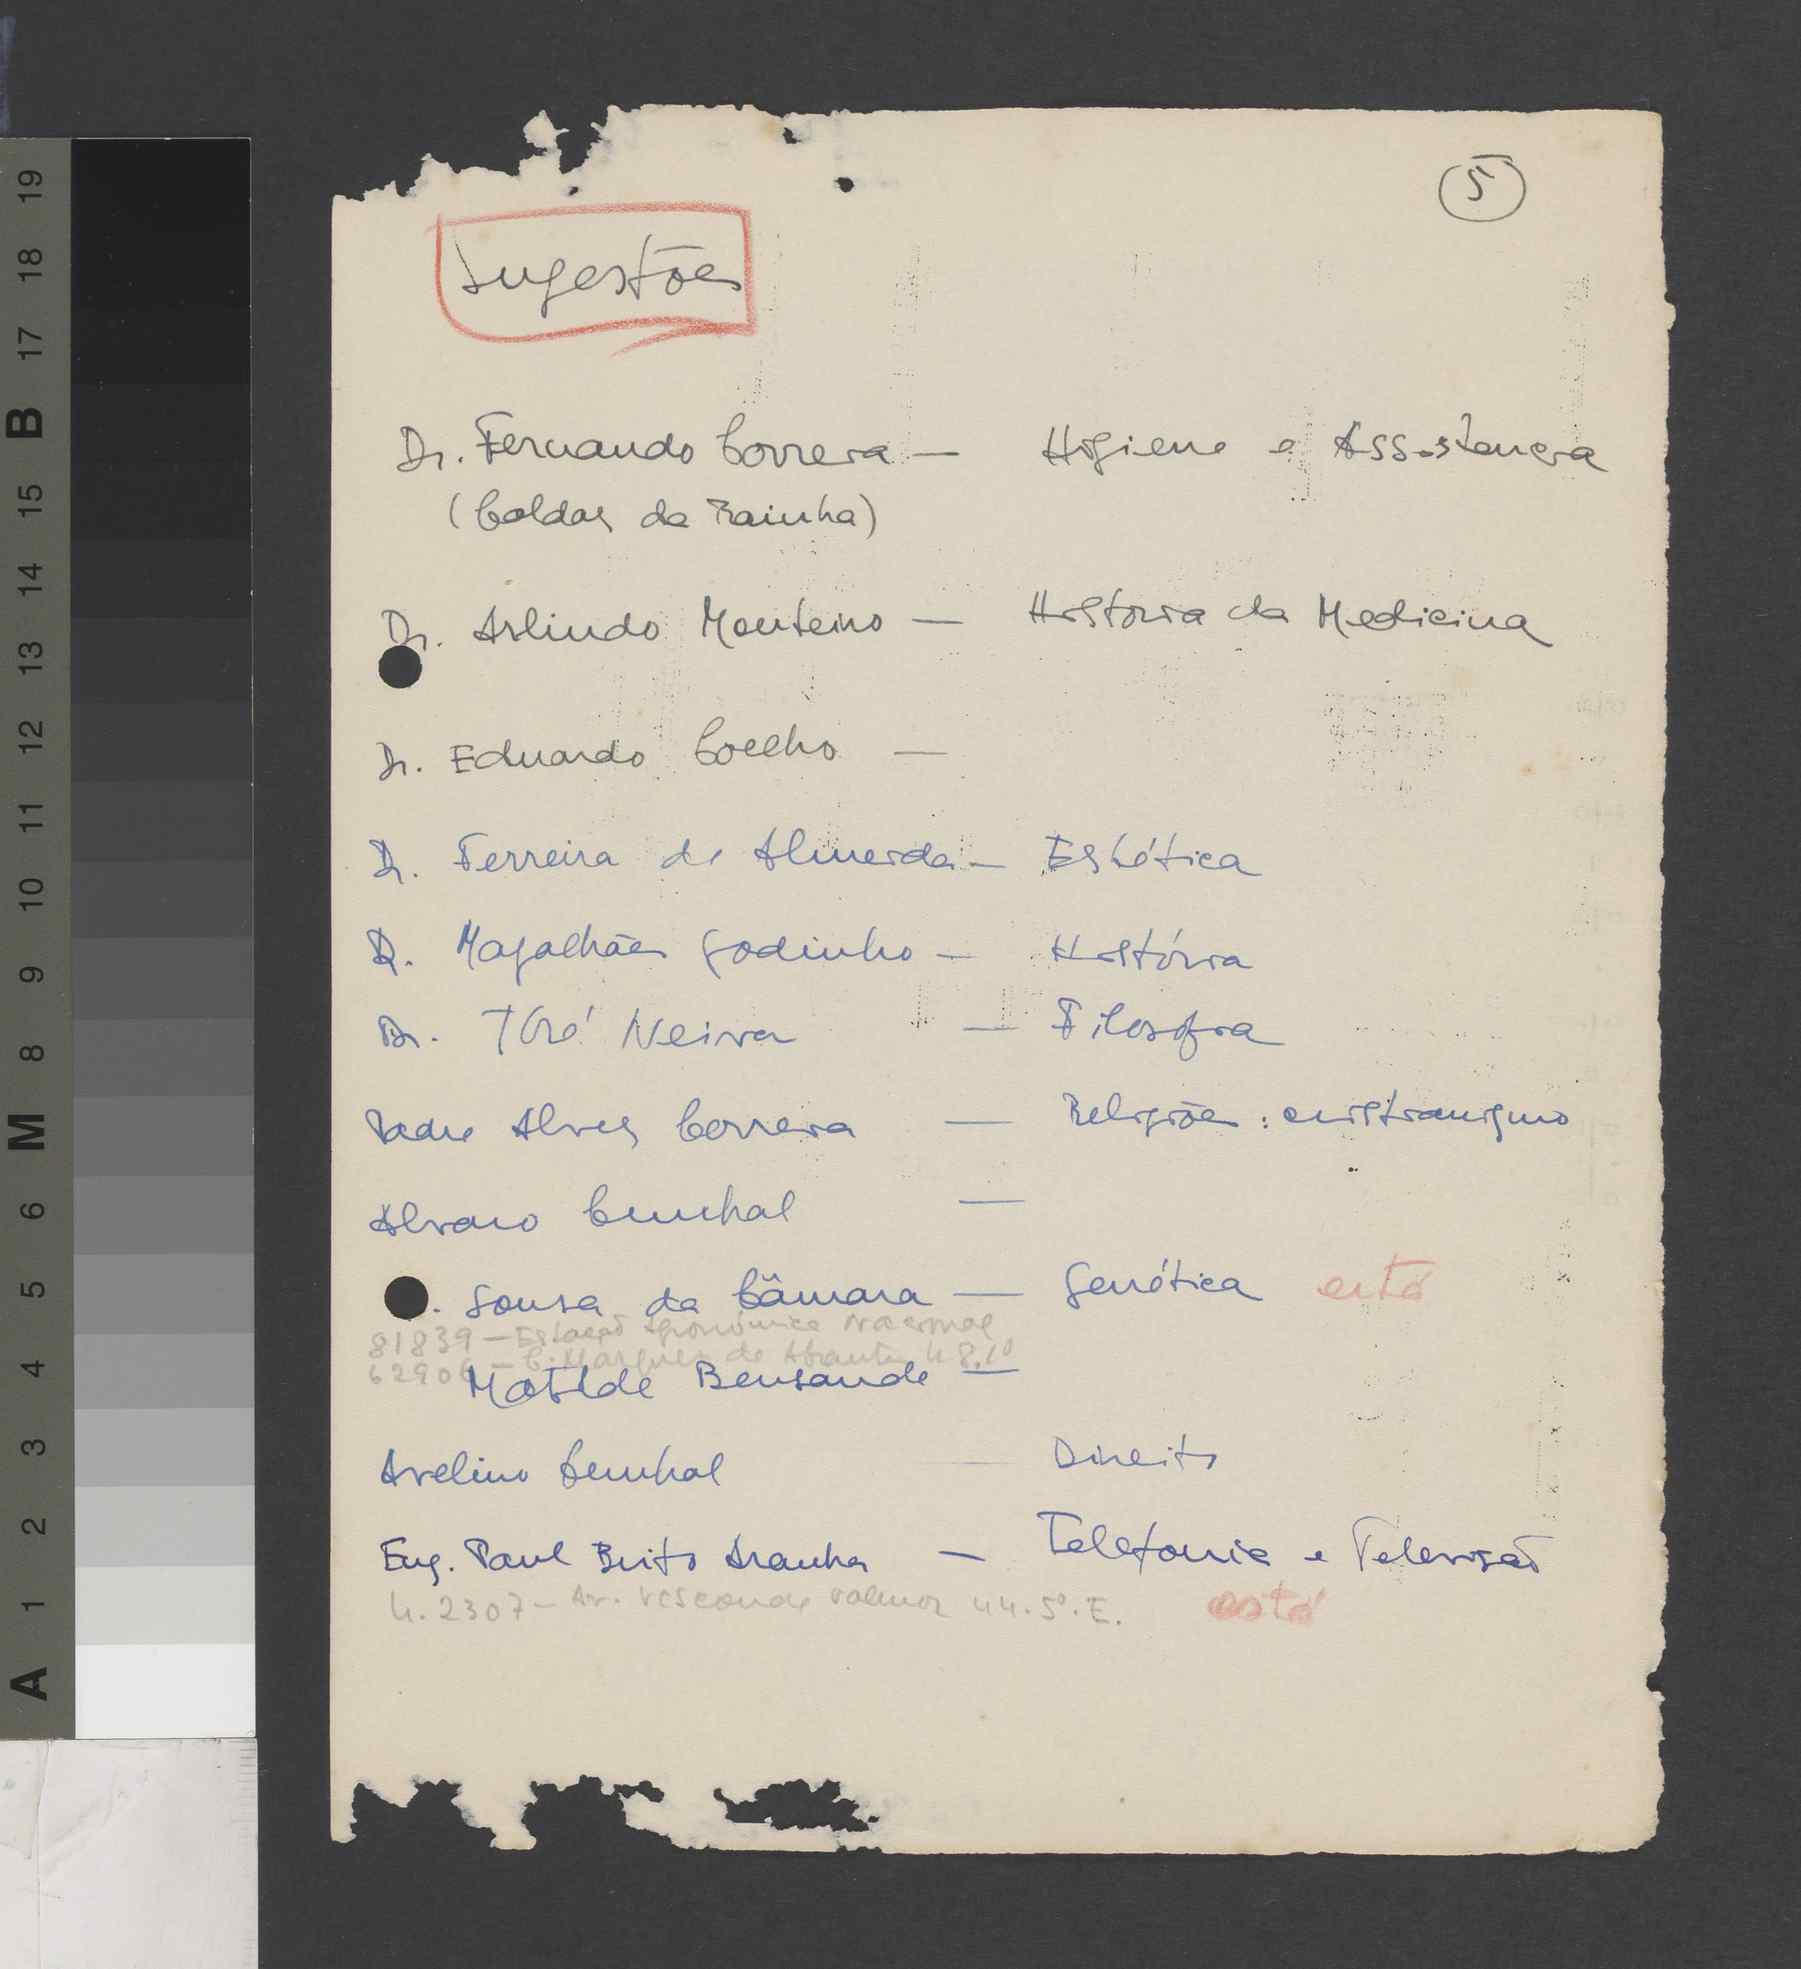 5
Sugestões
Dr. Fernando Correia — Higiene e Assistencia
(Caldas da Rainha)
Dr. Arlindo Monteiro — História da Medicina
Dr. Eduardo Coelho —
Dr. Ferreira de Almeida — Estética
Dr. Magalhães Godinho — História
Dr. Neiva — Filosofia
Padre Alves Correia — Religiões: cristianismo
Alvaro Cunhal —
. Sousa da Câmara — Genética está
81839 — Estação Agronómica Nacional
6290 — C. Marquês de Abrantes 48.1º
Matilde Bensaude —
Avelino Cunhal — Direito
Eng. Paul Brito Aranha — Telefonia e Televisão
4.2307 — Av. Visconde Valmor 44.5º.E. está
19
18
17
B
15
14
13
12
11
10
9
8
M
6
5
4
3
2
1
A